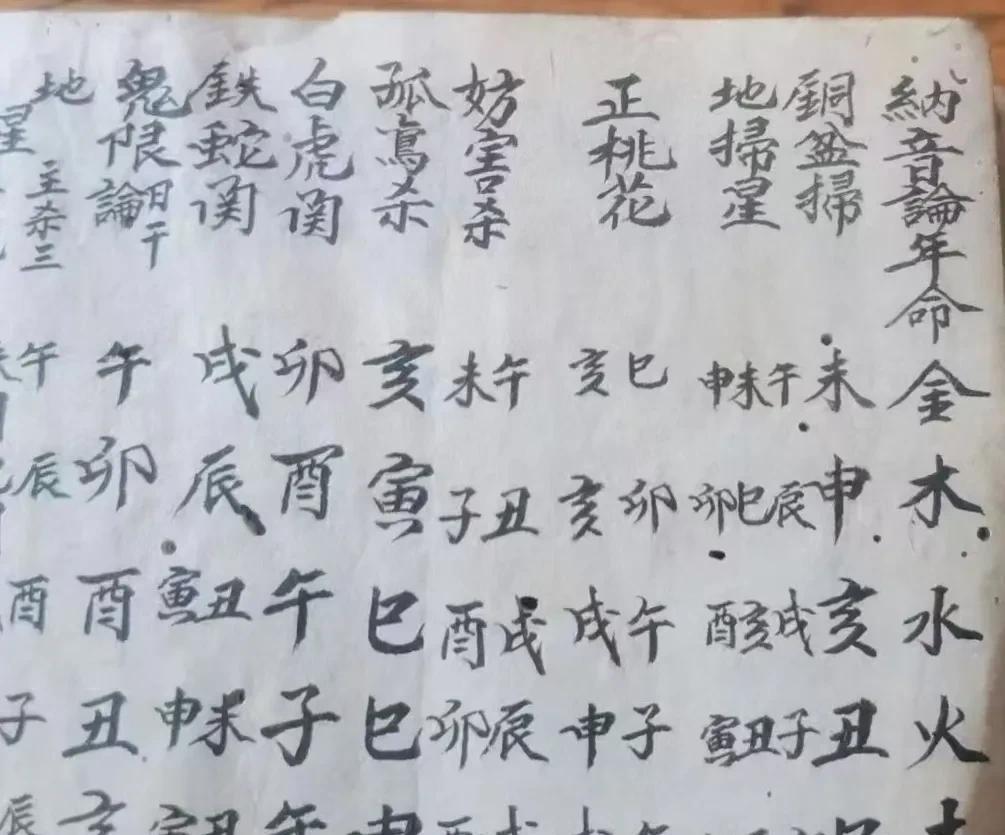 納音論年命 金 木 水 火
銅盆掃 未 申 亥 丑
地掃星 午未申 辰巳卯 戌亥酉 子丑寅
正桃花 巳亥 卯亥 午戌 子申
妨害杀 午未 丑子 戌酉 辰卯
孤鸞杀 亥 寅 巳 巳 申
白虎関 卯 酉 午 子 午
鉄蛇関 戌 辰 丑寅 未申 丑寅
鬼限論日干 午 卯 酉 丑 亥
地 主杀三 午 辰 酉 子 辰
星